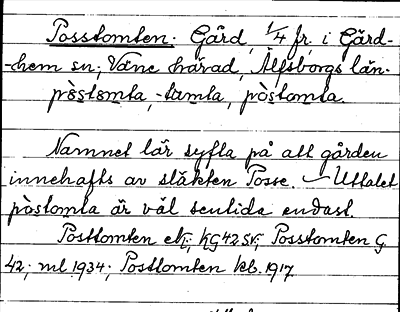 Posstomten. Gård, 1/4 fr. i Gård-
-hem sn; Väne härad, Älfsborgs län.
pòstomta, -tamta, pòstomta.
Namnet lär syfta på att gården
innehafts av släkten Posse. – Uttalet
pòstomta är väl sentida endast.
Posttomten ek; KG42SV; Posstomten G
42; ml 1934; Posttomten kb. 1917